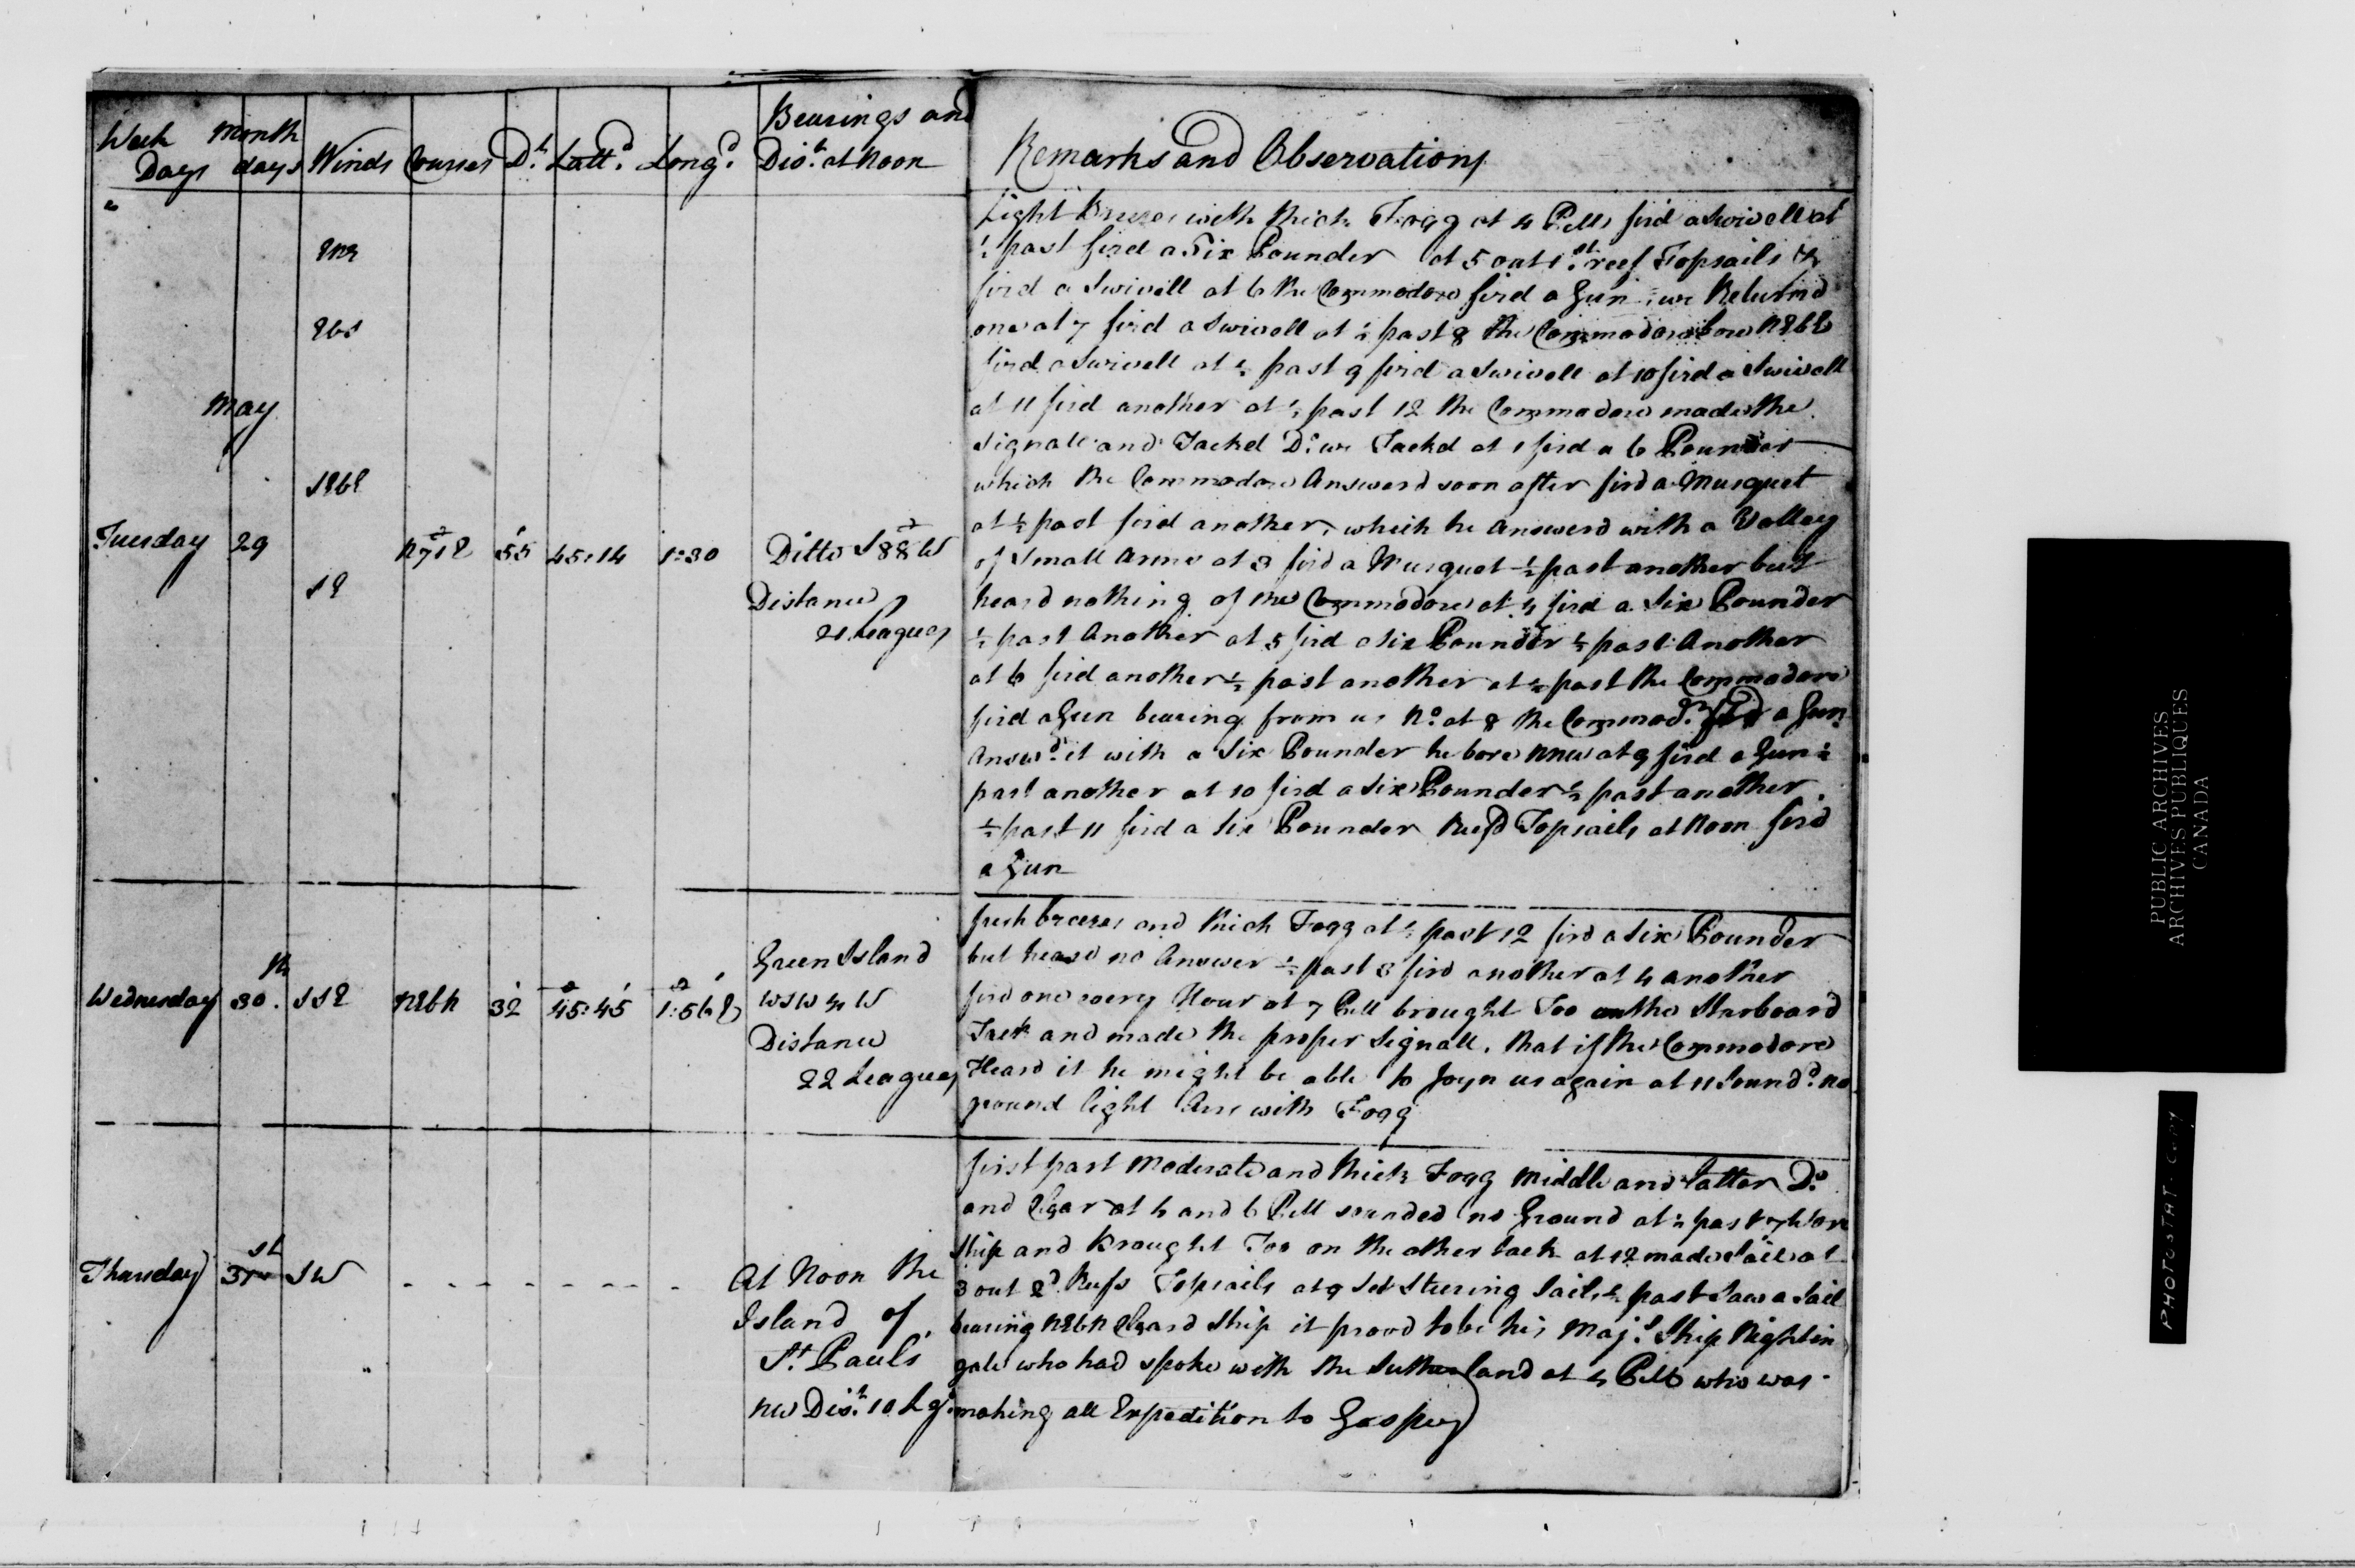 Week Days
Month days
Winds
Courses
D.t
Latt.d
Long.d
Bearings and
Dis.t at Noon
Remarks and Observations
May
Tuesday 29
ENE
EbS
SEbE
SE
N71E 55 45:14 1:30
Ditto S88W
Distance
21 Leagues
Light Breezes with thick Fogg at 4 PM fird a Swivell at
½ past fird a Six Pounder at 5 out 1st reef Topsails &
fird a Swivell at 6 the Commodore fird a Gun : we Returnd
one at 7 fird a Swivell at ½ past 8 the Commodore bore NEbE
fird a Swivell at ½ past 9 fird a Swivell at 10 fird a Swivell
at 11 fird another at ½ past 12 the Commodore made the
Signall and Tackd D.o we Tackd at 1 fird a 6 Pounder
which the Commodore Answerd soon after fird a Musquet
at ½ past fird another, which he answerd with a Volley
of Small Arms at 3 fird a Musquet ½ past another but
heard nothing of the Commodore at 4 fird a Six Pounder
½ past Another at 5 fird a Six Pounder ½ past Another
at 6 fird another ½ past another at ½ past the Commodore
fird a Gun bearing from us N.o at 8 the Commod.re fird a Gun
Answ.d it with a Six Pounder he bore NNW at 9 fird a Gun ½
past another at 10 fird a Six Pounder ½ past another.
½ past 11 fird a Six Pounder Reefd Topsails at Noon fird
a Gun
Wednesday 30th SSE NEbN 32 45:45 1:56E
Green Island
WSW ¼ W
Distance
22 Leagues
fresh breezes and thick Fogg at ½ past 12 fird a Six Pounder
but heard no Answer ½ past 3 fird another at 4 another
fird one every Hour at 7 PM brought Too on the Starboard
Tack and made the proper Signall, that if the Commodore
Heard it he might be able to Joyn us again at 11 Sound.d no
ground light Airs with Fogg
Thursday 31st SW - - - - - - - -
At Noon the
Island of
St. Pauls
NW Dis.t 10 Lg.s
first part Moderate and thick Fogg middle and latter D.o
and Clear at 4 and 6 PM sounded no Ground at ½ past 7 Wore
Ship and Brought Too on the other tack at 12 made Sail at
3 out 2d Reefs Topsails at 9 Set Steering Sails ½ past Saw a Sail
bearing NEbN Cleard Ship it provd to be his Maj.s Ship Nightin
gale who had spoke with the Sutherland at 4 PM who was
making all Expedition to Gaspey
PUBLIC ARCHIVES
ARCHIVES PUBLIQUES
CANADA
PHOTOSTAT-COPY